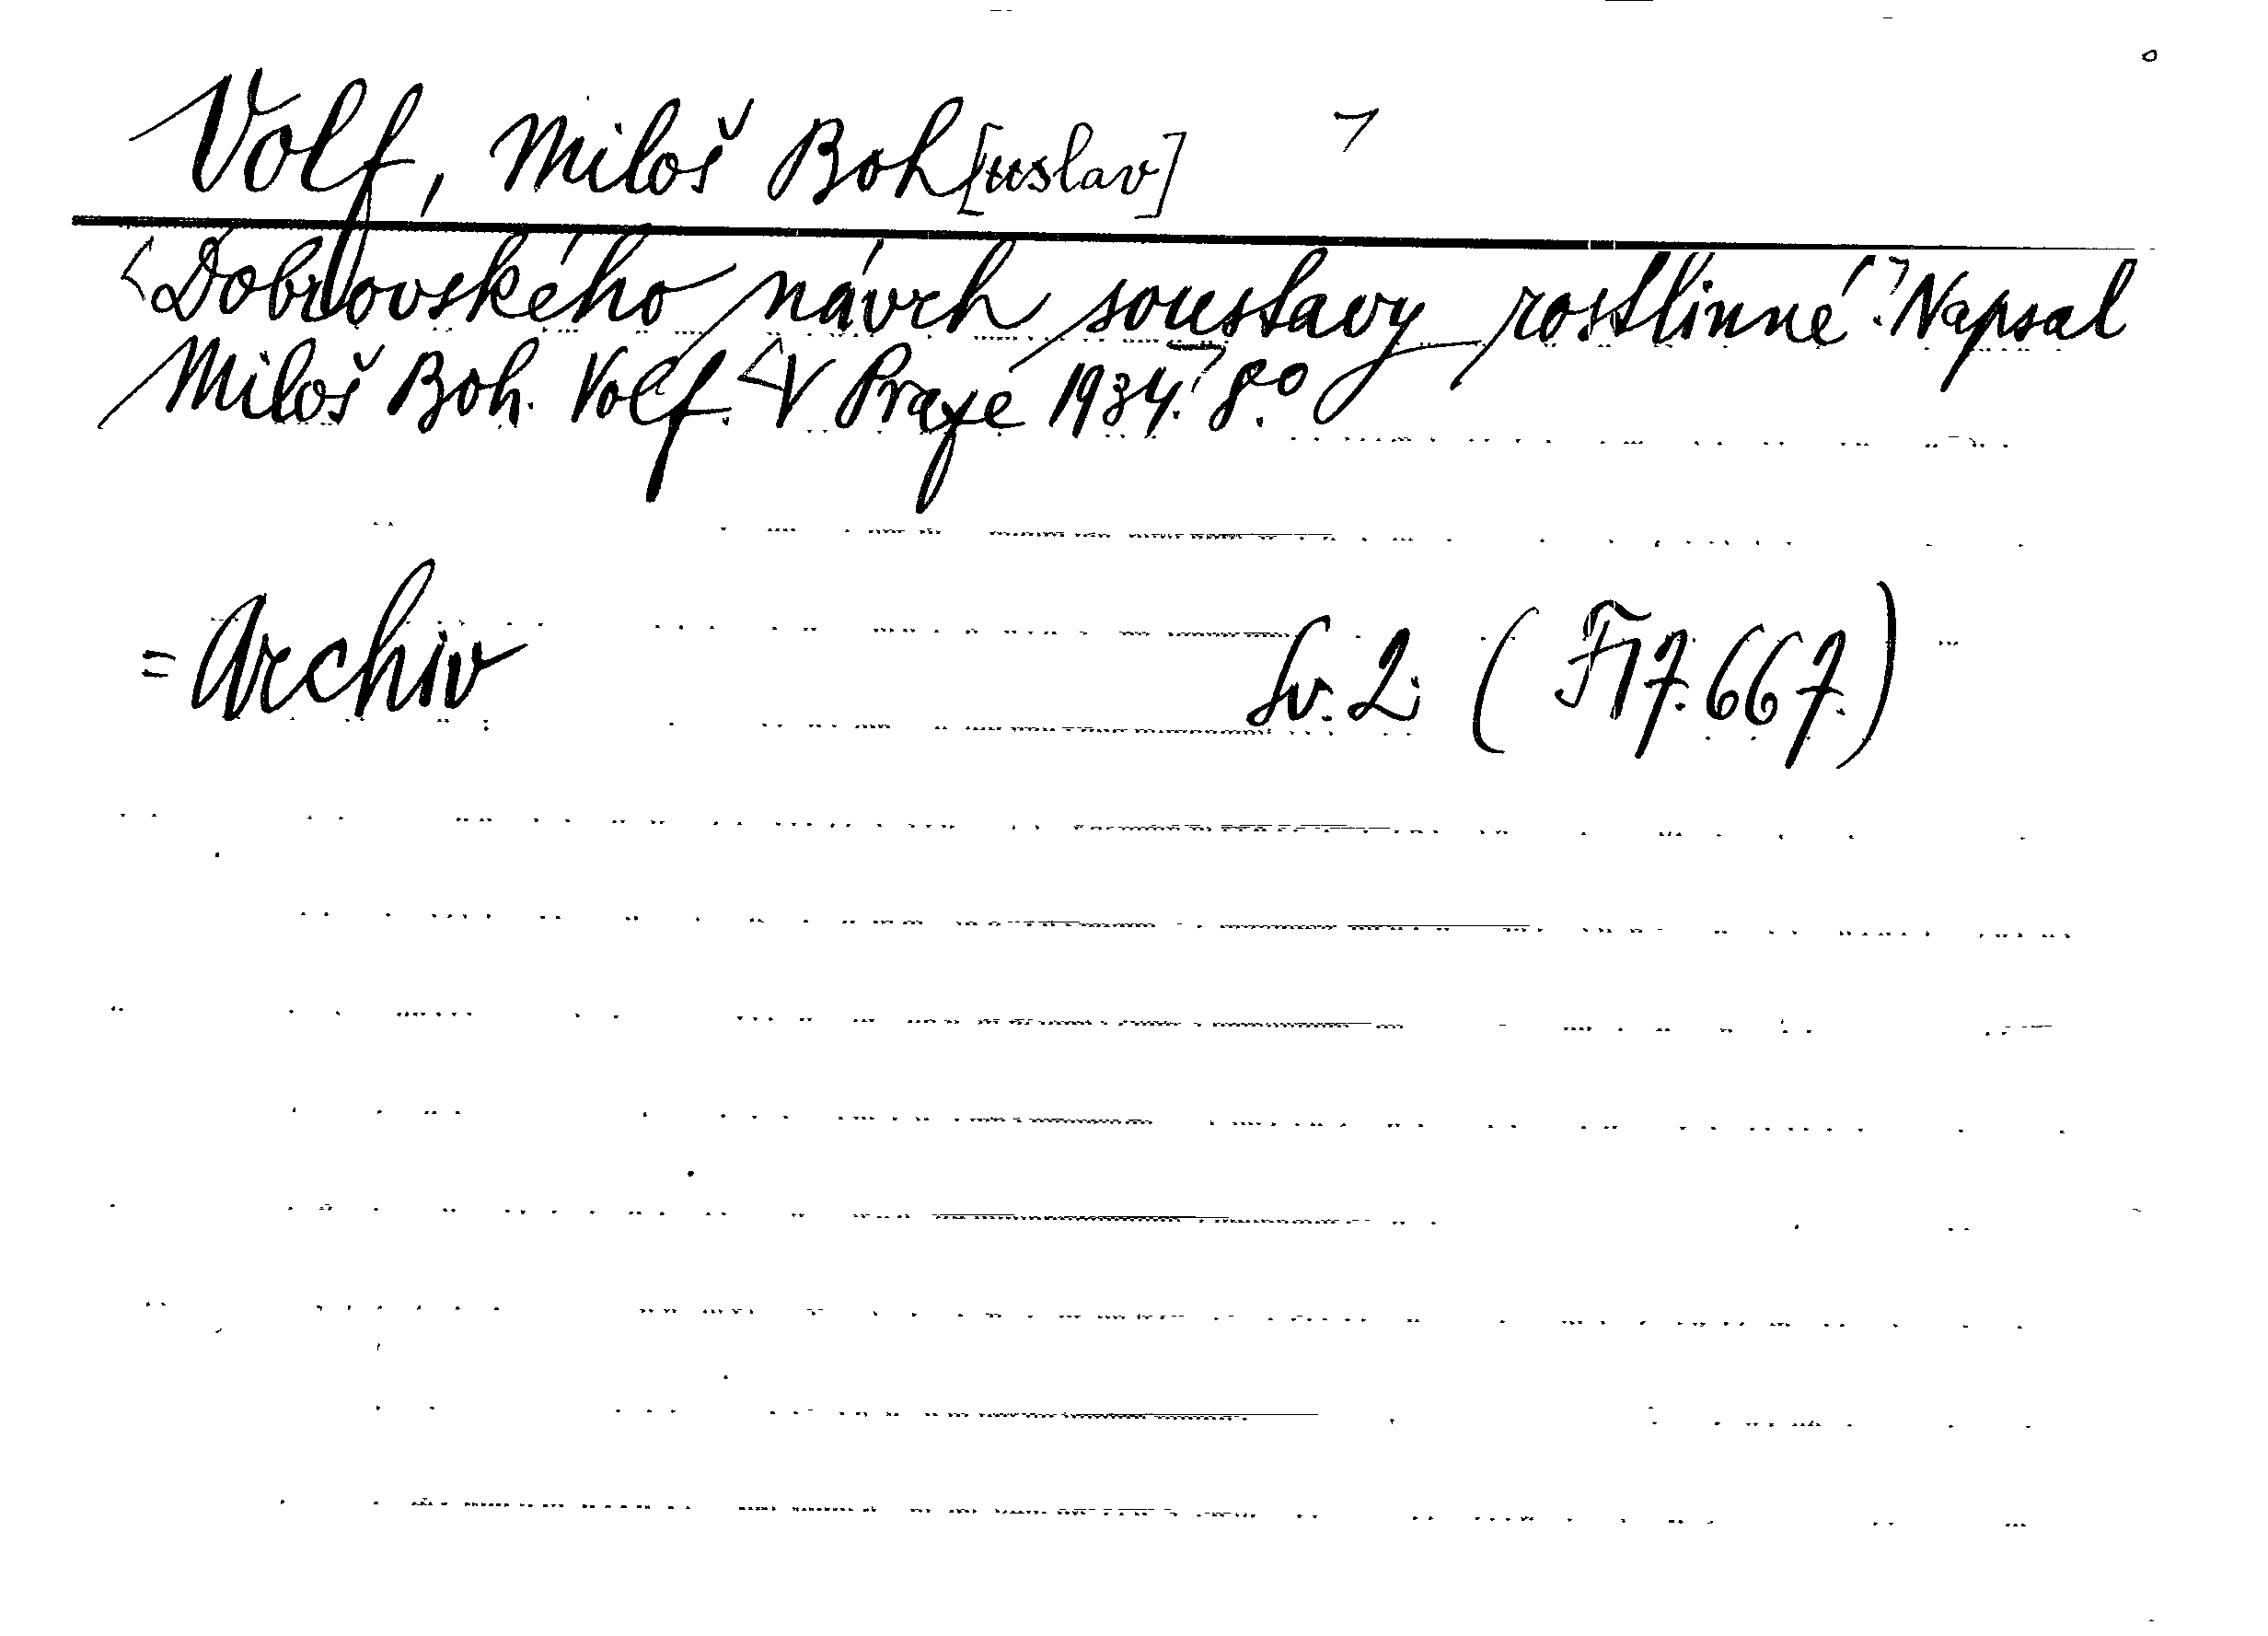 Volf, Miloš Boh[uslav]
<Dobrovského návrh soustavy rostlinné.> Napsal
Miloš Boh. Volf. <V Praze 1934.> 8.º
= Archiv Sv. 2. (F 17.667.)